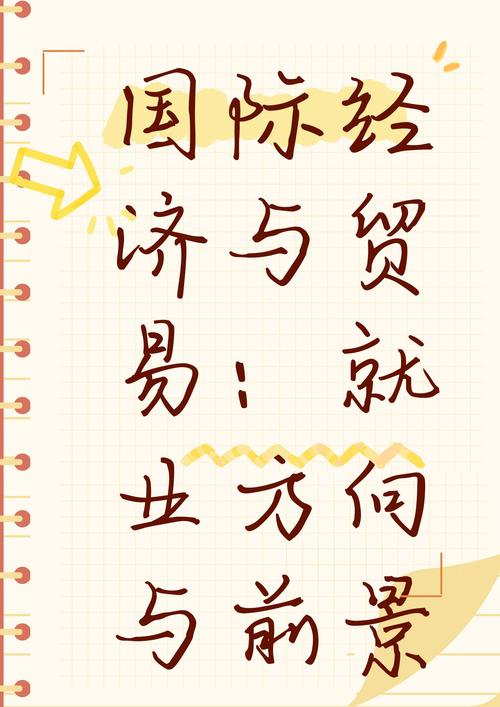 国际经
济与贸
易：就
业方向
与前景